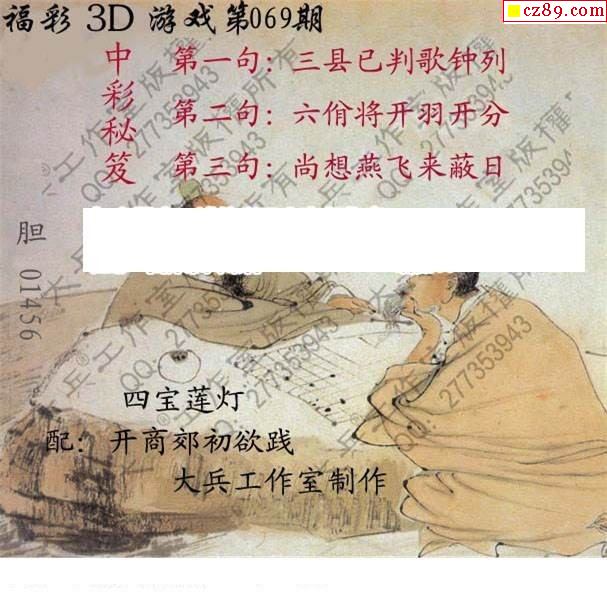 福彩 3D 游戏第069期
cz89.com
中彩秘笈
第一句：三县已判歌钟列
第二句：六佾将开羽开分
第三句：尚想燕飞来蔽日
胆 01456
四宝莲灯
配：开商郊初欲践
大兵工作室制作
大兵工作室版权所有
QQ：277353943